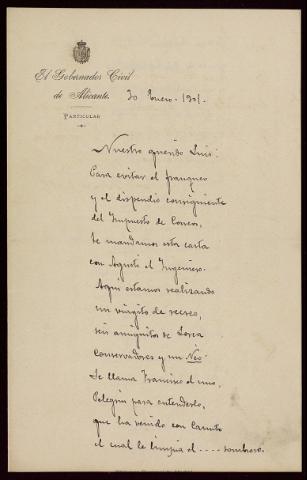 El Gobernador Civil
de Alicante.
30 Enero - 1901.
PARTICULAR
Nuestro querido Luis:
Para evitar el franqueo
y el dispendio consiguiente
del Impuesto de Correos,
te mandamos esta carta
con Agustí el Ingeniero.
Aquí estamos realizando
un viajito de recreo,
seis amiguitos de Lorca
Conservadores y un Neo.
Se llama Francisco el uno,
Pelegrín para entenderlo,
que ha venido con Camilo
el cual le limpia el .... sombrero.